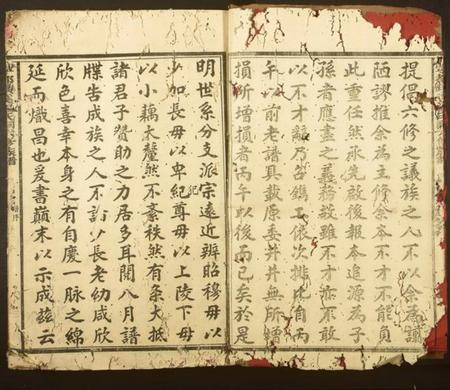 提倡六修之議族之人不以余為譾
陋謬推余為主修余本不才不能負
此重任然承先啟後報本追源為子
孫者應盡之義務故雖不才亦不敢
以不才辭乃召鐫工依次排比自丙
午以前老譜具載原委井井無所增
損所增損者丙午以後而已矣於是
明世系分支派宗遠近辨昭穆毋以
少加長毋以卑紀尊毋以上陵下毋
以小藕大釐然不紊秩然有条大抵
諸君子贊助之力居多耳閱八月譜
牒告成族之人不 少長老幼咸欣
欣色喜幸本身之有自慶一脉之綿
延而熾昌也爰書巔末以示成茲云